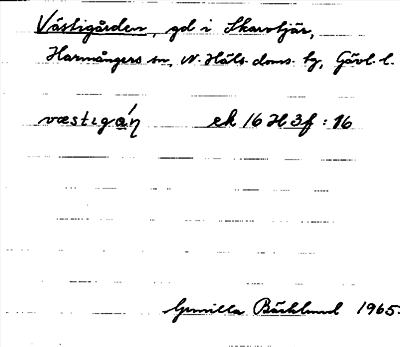 Västigården, gd i Skarvtjär,
Harmångers sn, N. Häls. doms. hg, Gävl. l.
væstıgáɳ ek 16 H 3f : 16
Gunilla Bäcklund 1965.